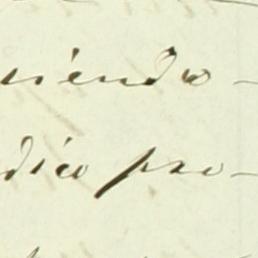 uiendo -
dico pro-